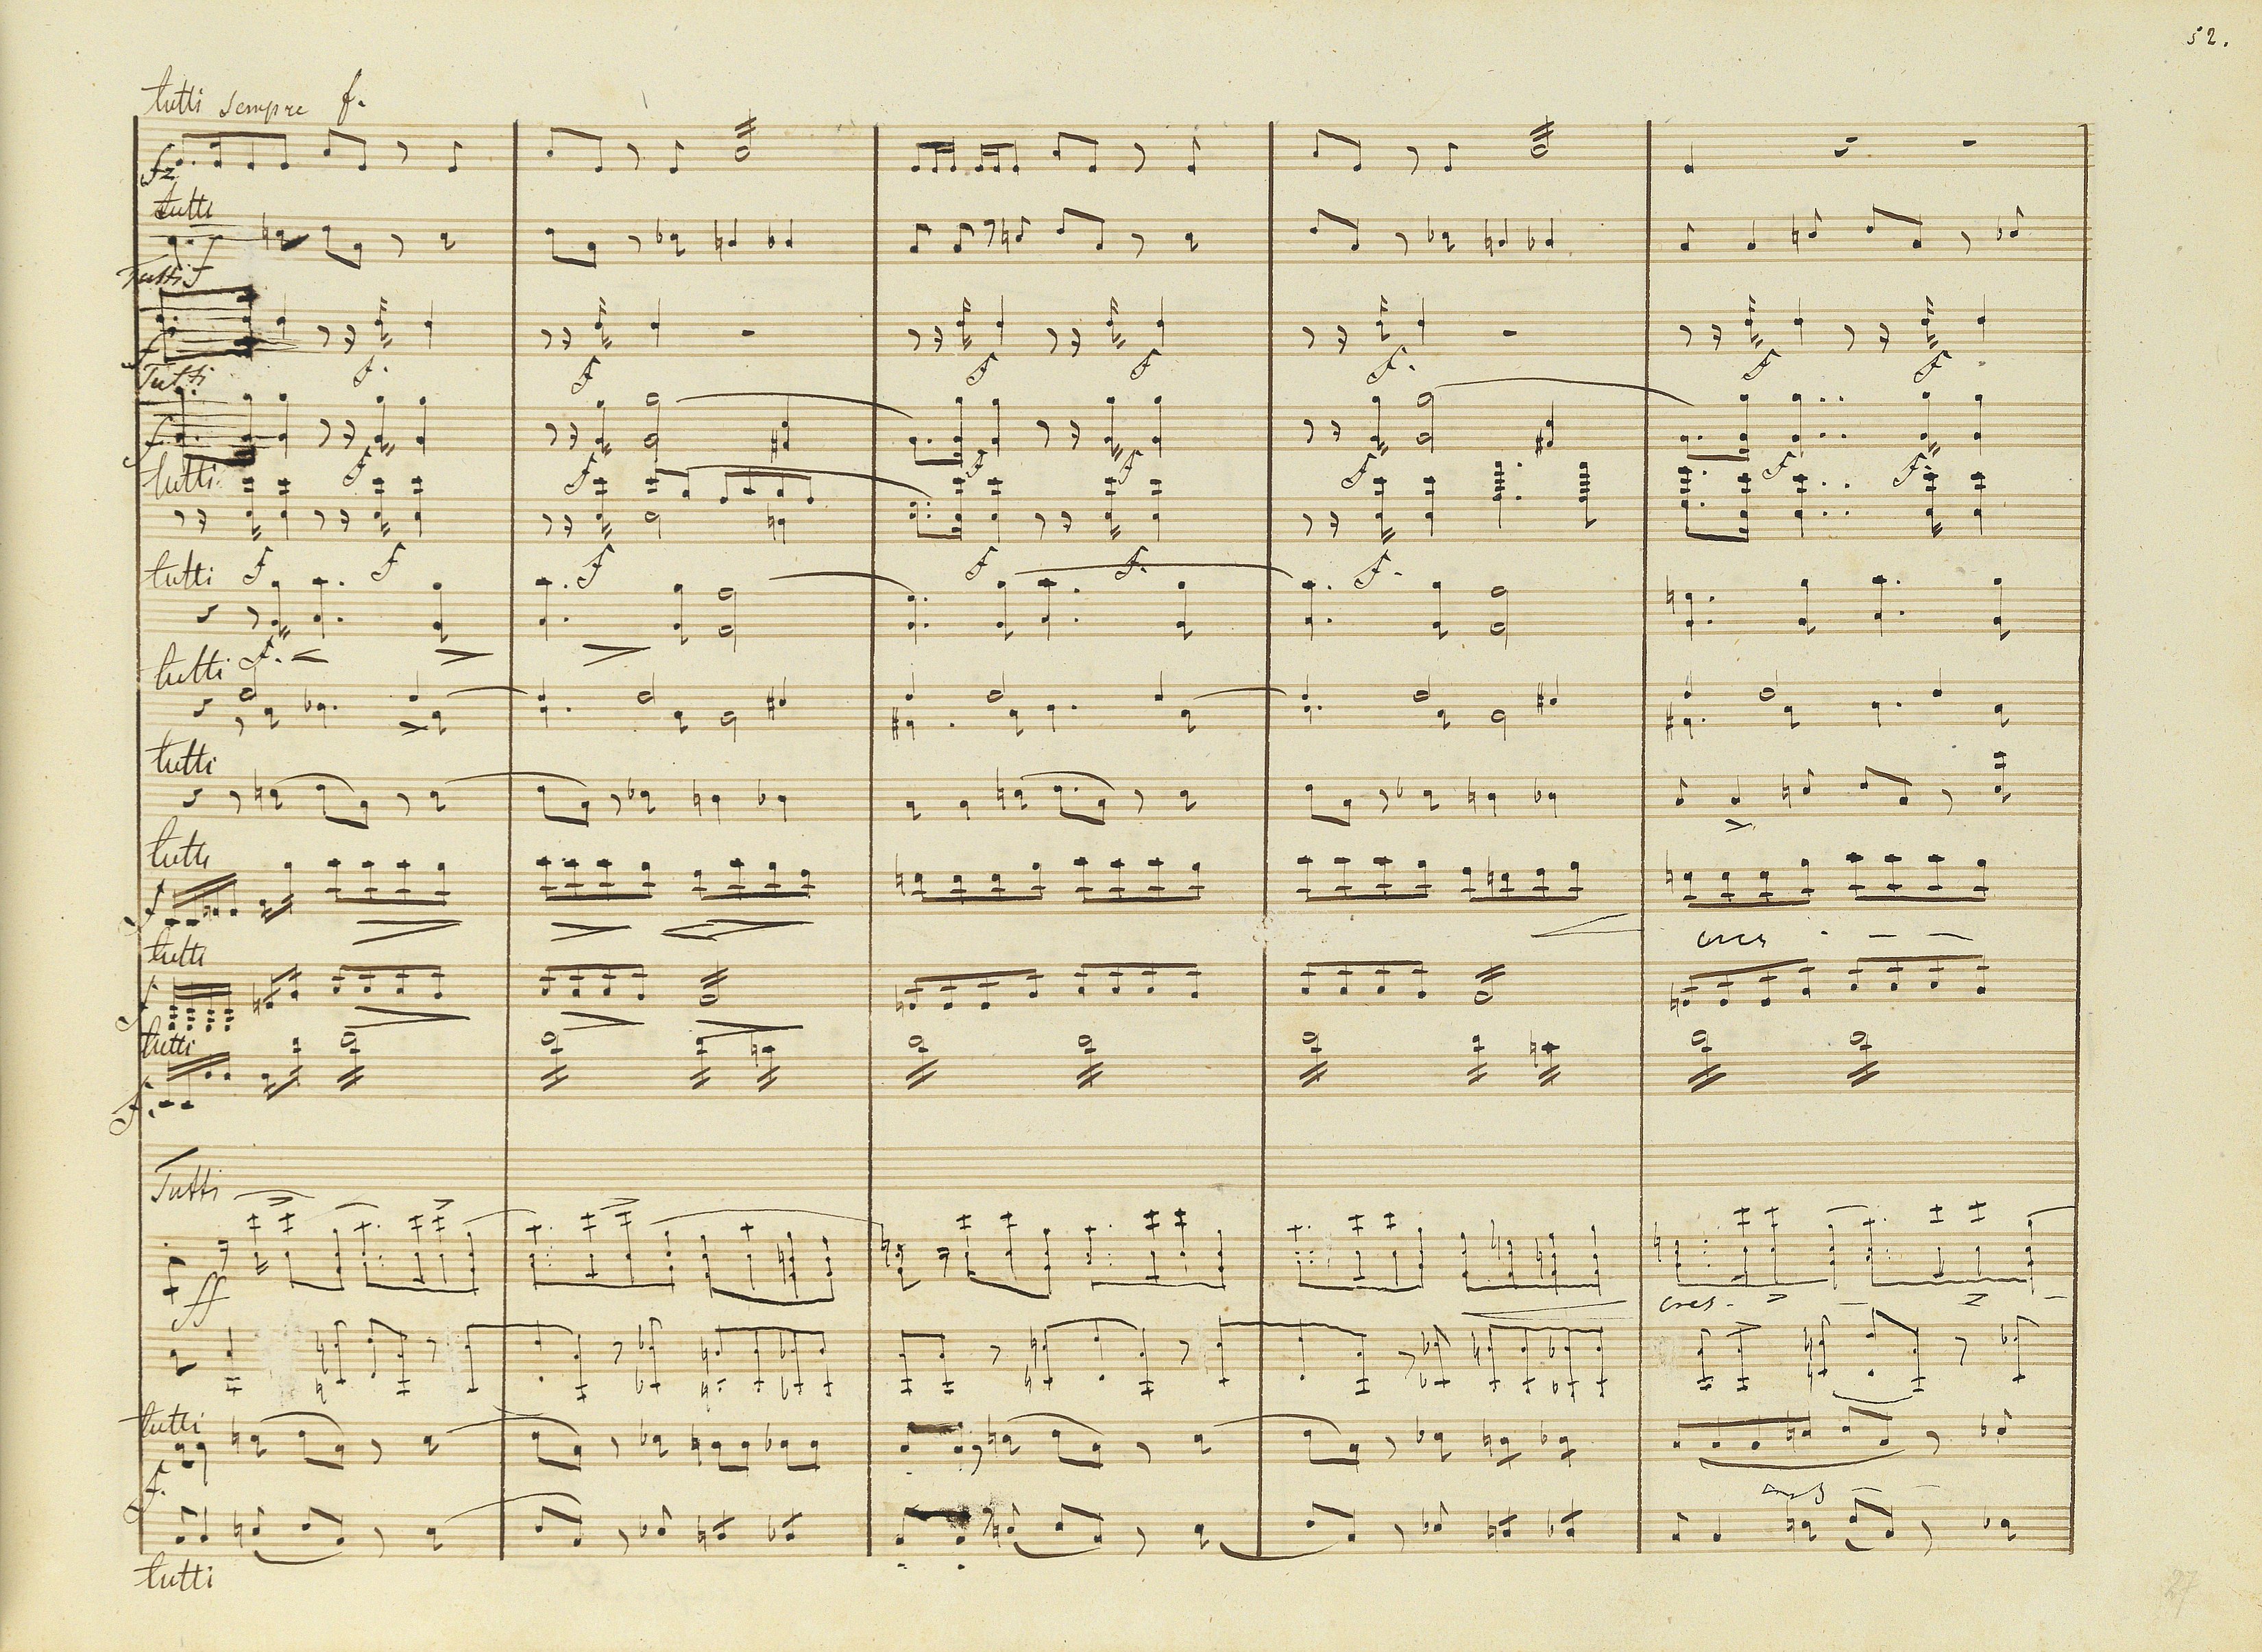 52.
tutti sempre f.
fz
tutti
f
Tutti
f f.
f f f f.
f f f f
Tutti
f
f f f f f f f
tutti
f f f f f. f.
tutti
f.
tutti
tutti
tutti
f
cres
tutti
f
tutti
f.
Tutti
ff
cres.
tutti
f.
cres
tutti
27